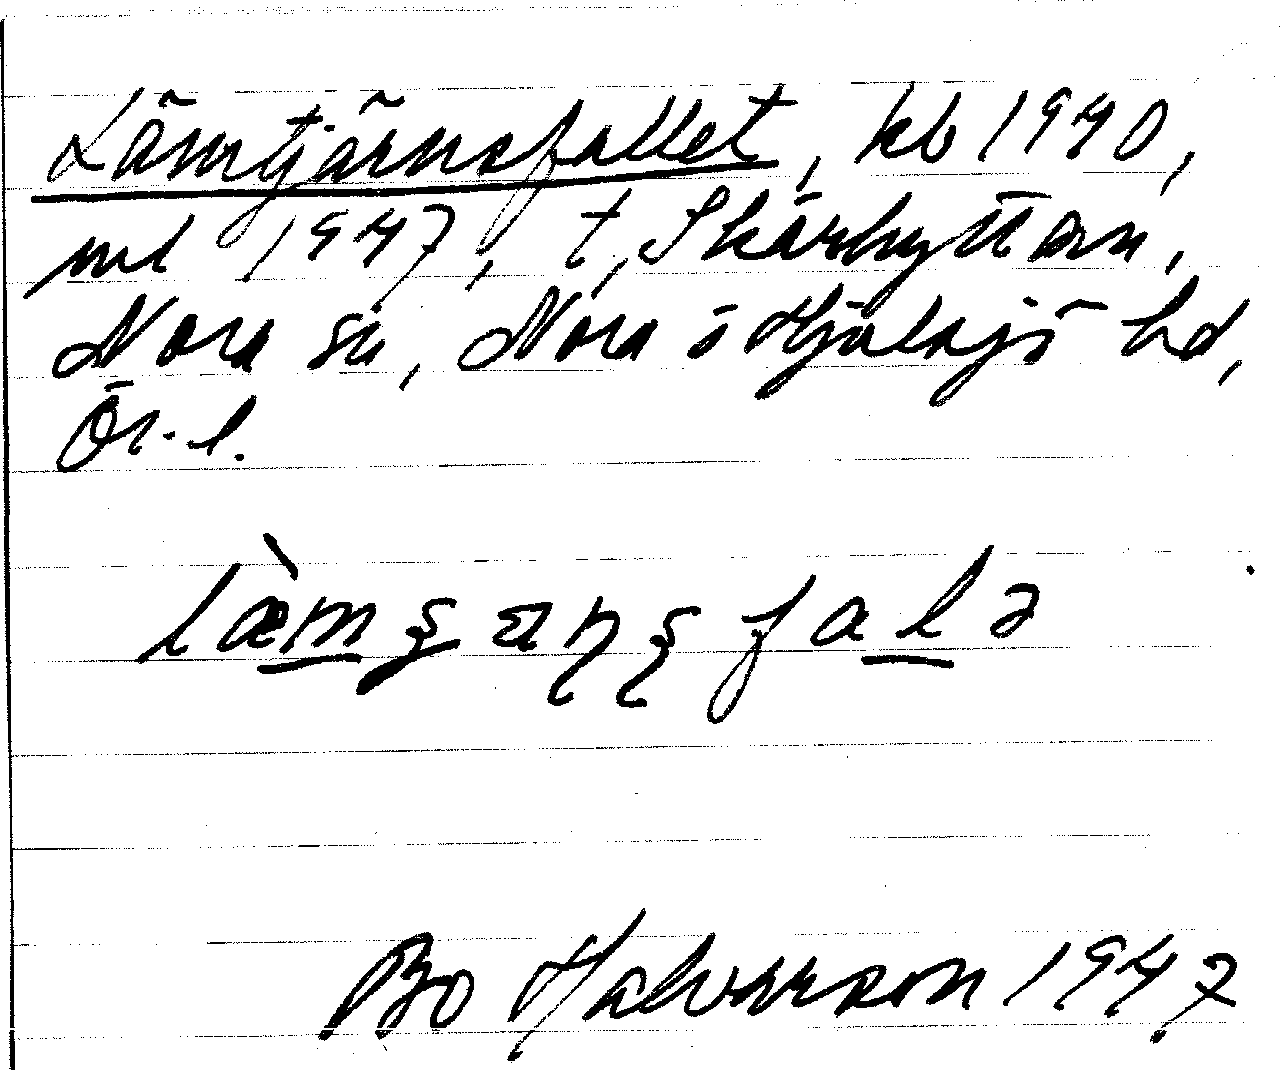 Lämtjärnsfallet, kb 1940,
ml 1947, t. Skärhyttan,
Nora sn, Nora o Hjulsjö hd,
Ör. l.
Bo Halvarson 1947